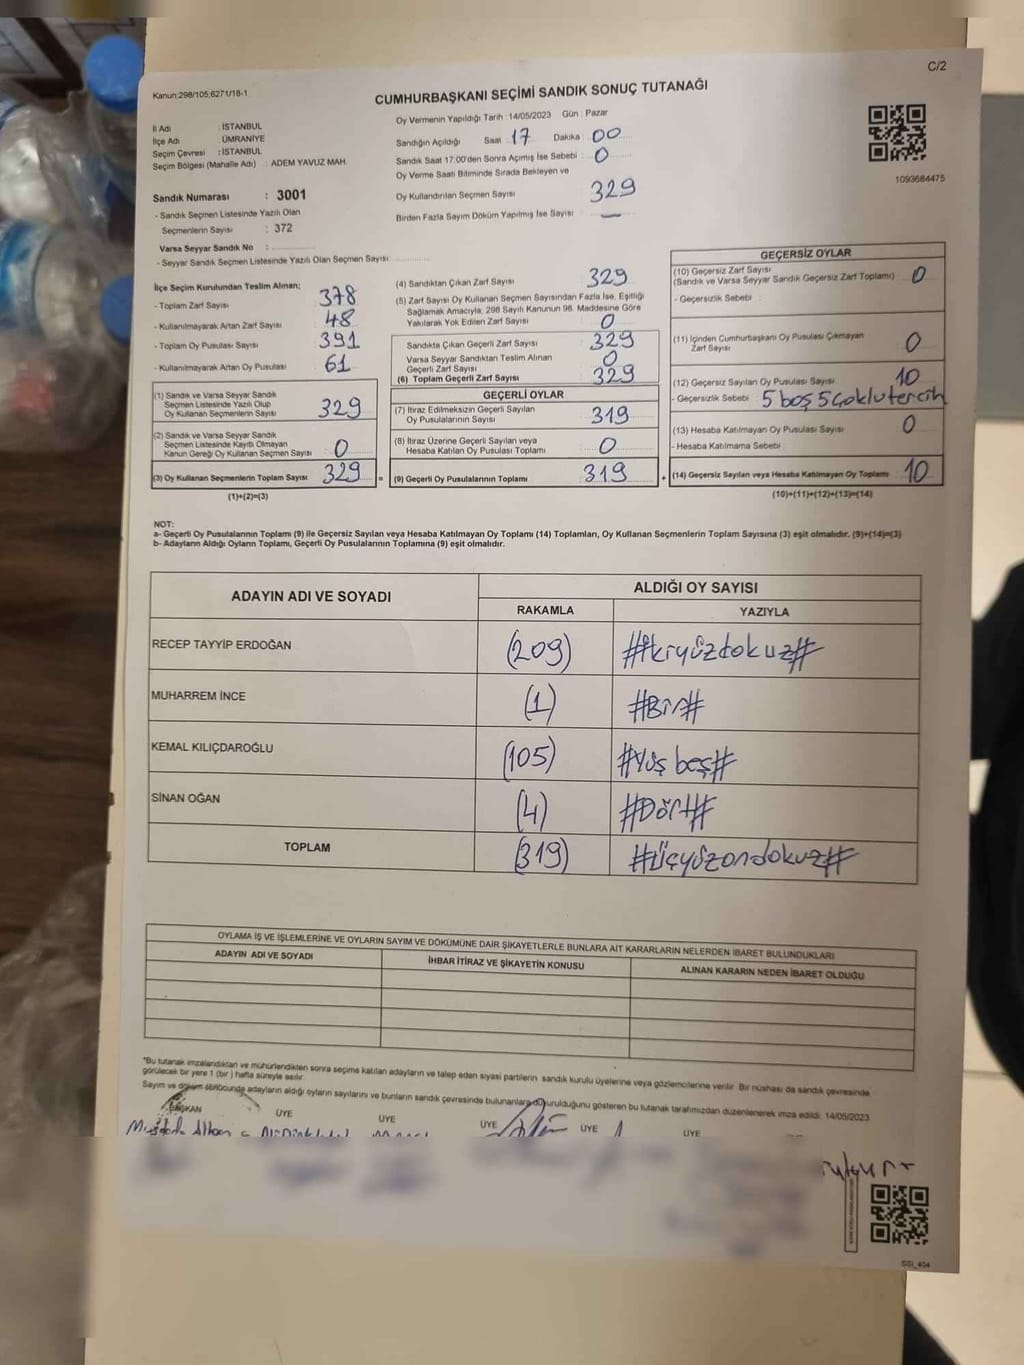 C/2
Kanun:298/105;6271/18-1
CUMHURBAŞKANI SEÇİMİ SANDIK SONUÇ TUTANAĞI
İl Adı : İSTANBUL
İlçe Adı : ÜMRANİYE
Seçim Çevresi : İSTANBUL
Seçim Bölgesi (Mahalle Adı) : ADEM YAVUZ MAH.
Sandık Numarası : 3001
- Sandık Seçmen Listesinde Yazılı Olan
Seçmenlerin Sayısı : 372
Varsa Seyyar Sandık No :
- Seyyar Sandık Seçmen Listesinde Yazılı Olan Seçmen Sayısı:
Oy Vermenin Yapıldığı Tarih : 14/05/2023 Gün : Pazar
Sandığın Açıldığı Saat : 17 Dakika : 00
Sandık Saat 17.00'den Sonra Açımış İse Sebebi : 0
Oy Verme Saati Bitiminde Sırada Bekleyen ve
Oy Kullandırılan Seçmen Sayısı : 329
Birden Fazla Sayım Döküm Yapılmış İse Sayısı : —
1093684475
İlçe Seçim Kurulundan Teslim Alınan;
- Toplam Zarf Sayısı : 378
- Kullanılmayarak Artan Zarf Sayısı : 48
- Toplam Oy Pusulası Sayısı : 391
- Kullanılmayarak Artan Oy Pusulası : 61
(1) Sandık ve Varsa Seyyar Sandık
Seçmen Listesinde Yazılı Olup
Oy Kullanan Seçmenlerin Sayısı : 329
(2) Sandık ve Varsa Seyyar Sandık
Seçmen Listesinde Kayıtlı Olmayan
Kanun Gereği Oy Kullanan Seçmen Sayısı : 0
(3) Oy Kullanan Seçmenlerin Toplam Sayısı : 329
(1)+(2)=(3)
(4) Sandıktan Çıkan Zarf Sayısı : 329
(5) Zarf Sayısı Oy Kullanan Seçmen Sayısından Fazla İse, Eşitliği
Sağlamak Amacıyla, 298 Sayılı Kanunun 98. Maddesine Göre
Yakılarak Yok Edilen Zarf Sayısı : 0
Sandıkta Çıkan Geçerli Zarf Sayısı : 329
Varsa Seyyar Sandıktan Teslim Alınan
Geçerli Zarf Sayısı : 0
(6) Toplam Geçerli Zarf Sayısı : 329
GEÇERLİ OYLAR
(7) İtiraz Edilmeksizin Geçerli Sayılan
Oy Pusulalarının Sayısı : 319
(8) İtiraz Üzerine Geçerli Sayılan veya
Hesaba Katılan Oy Pusulası Toplamı : 0
= (9) Geçerli Oy Pusulalarının Toplamı : 319
GEÇERSİZ OYLAR
(10) Geçersiz Zarf Sayısı
(Sandık ve Varsa Seyyar Sandık Geçersiz Zarf Toplamı) : 0
- Geçersizlik Sebebi :
(11) İçinden Cumhurbaşkanı Oy Pusulası Çıkmayan
Zarf Sayısı : 0
(12) Geçersiz Sayılan Oy Pusulası Sayısı : 10
- Geçersizlik Sebebi : 5 boş 5 çoklu tercih
(13) Hesaba Katılmayan Oy Pusulası Sayısı : 0
- Hesaba Katılmama Sebebi :
+ (14) Geçersiz Sayılan veya Hesaba Katılmayan Oy Toplamı : 10
(10)+(11)+(12)+(13)=(14)
NOT:
a- Geçerli Oy Pusulalarının Toplamı (9) ile Geçersiz Sayılan veya Hesaba Katılmayan Oy Toplamı (14) Toplamları, Oy Kullanan Seçmenlerin Toplam Sayısına (3) eşit olmalıdır. (9)+(14)=(3)
b- Adayların Aldığı Oyların Toplamı, Geçerli Oy Pusulalarının Toplamına (9) eşit olmalıdır.
ADAYIN ADI VE SOYADI ALDIĞI OY SAYISI
RAKAMLA YAZIYLA
RECEP TAYYİP ERDOĞAN (209) #ikiyüzdokuz#
MUHARREM İNCE (1) #Bir#
KEMAL KILIÇDAROĞLU (105) #Yüz beş#
SİNAN OĞAN (4) #Dört#
TOPLAM (319) #Üçyüzondokuz#
OYLAMA İŞ VE İŞLEMLERİNE VE OYLARIN SAYIM VE DÖKÜMÜNE DAİR ŞİKAYETLERLE BUNLARA AİT KARARLARIN NELERDEN İBARET BULUNDUKLARI
ADAYIN ADI VE SOYADI İHBAR İTİRAZ VE ŞİKAYETİN KONUSU ALINAN KARARIN NEDEN İBARET OLDUĞU
*Bu tutanak imzalandıktan ve mühürlendikten sonra seçime katılan adayların ve talep eden siyasi partilerin sandık kurulu üyelerine veya gözlemcilerine verilir. Bir nüshası da sandık çevresinde
görülecek bir yere 1 (bir) hafta süreyle asılır.
Sayım ve döküm sonucunda adayların aldığı oyların sayılarını ve bunların sandık çevresinde bulunanlara duyurulduğunu gösteren bu tutanak tarafımızdan düzenlenerek imza edildi. 14/05/2023
BAŞKAN ÜYE ÜYE ÜYE ÜYE ÜYE
SSI_404